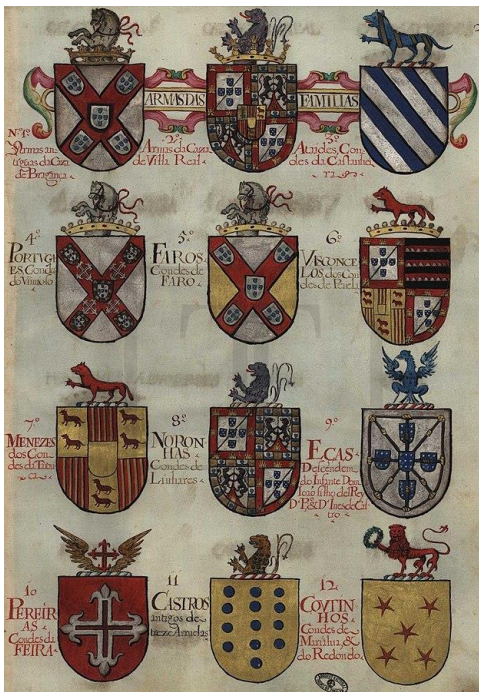 ARMAS DAS FAMILIAS
Nº 1º
Armas an
tiguas da Caza
de Bragança
2º
Armas da Caza
de Villa Real
3º
Ataides Con
des da Castanhei
ra
4º
PORTVG
ES. Conde
do Vimiozo
5º
FAROS
Condes de
FARO
6º
VASCONCE
LOS dos Con
des de Penela
7º
MENEZES
dos Con
des da Tarou
ca
8º
NORON
HAS
Condes de
Linhares
9º
EÇAS
Descendem
do Infante Dom
João filho del Rey
Dº Pº & Dª Ines de Cas
tro
10
PEREIR
AS
Condes da
FEIRA
11
CASTROS
antigos de
treze Arruelas
12
COVTIN
HOS
Condes de
Marialva, &
do Redondo